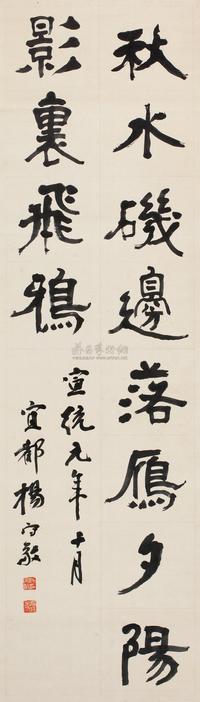 秋水磯邊落鴈夕陽
影裏飛鴉
宣統元年十月
宜都楊守敬